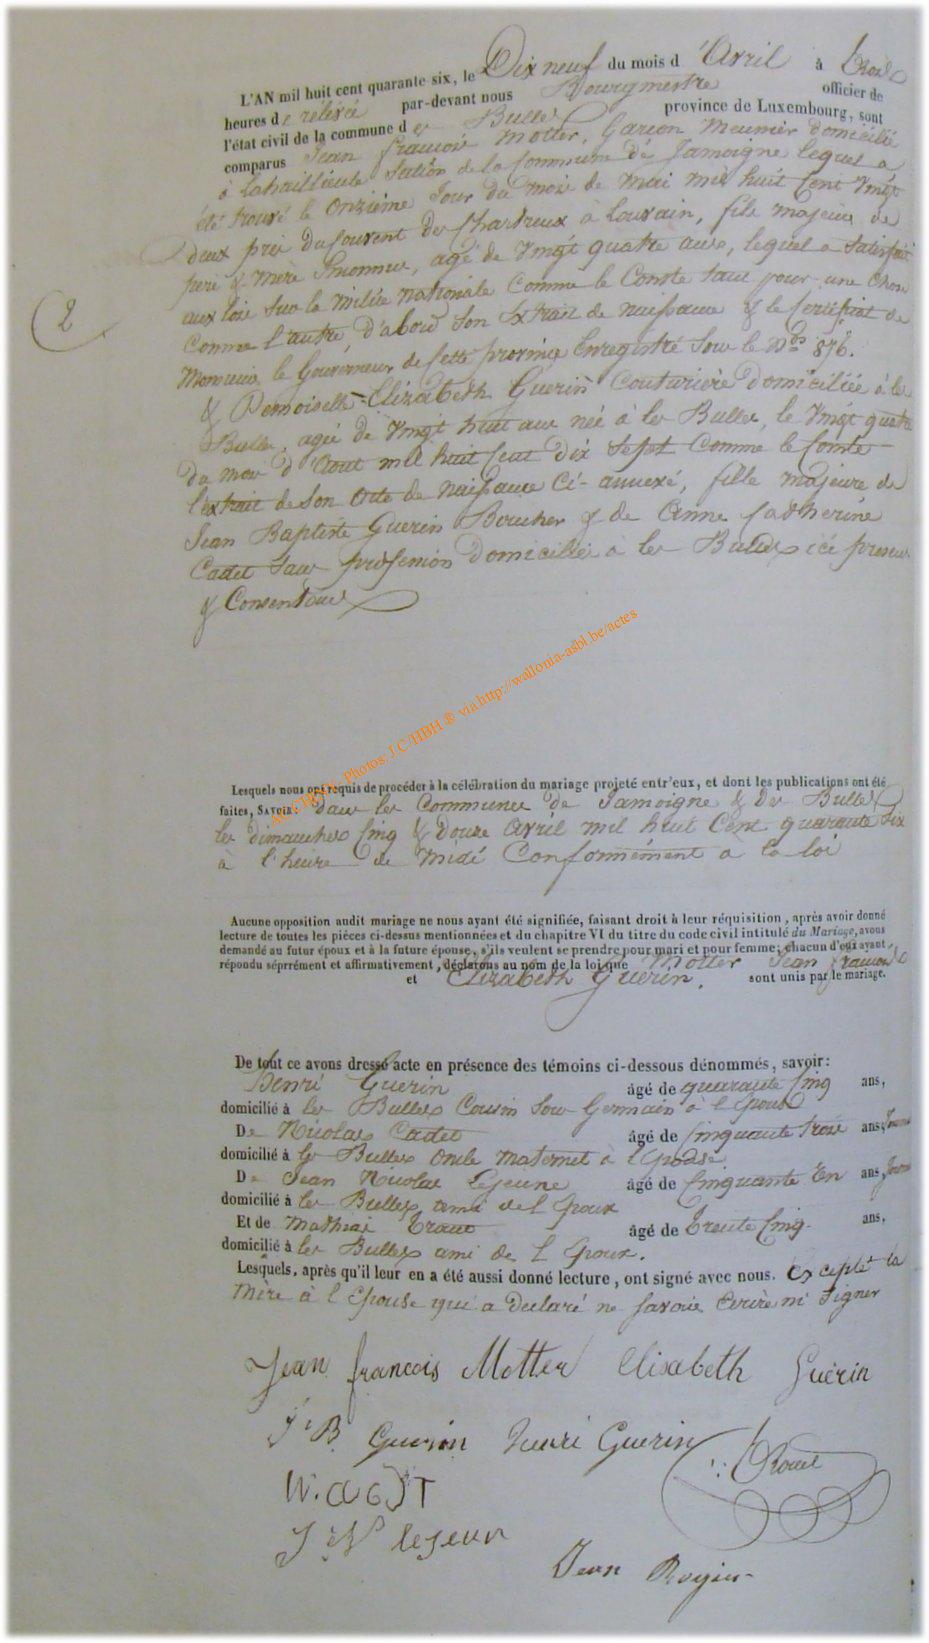 L'AN mil huit cent quarante-six, le Dix neuf du mois d'Avril à trois
heures de relévée par-devant nous Bourgmestre officier de
l'état civil de la commune des Bulles province de Luxembourg, sont
comparus Jean francois Motter, Garcon Meunier domicilié
à Lahaillieule Section de la Commune de Jamoigne lequel a
été trouvé le onzième Jour du mois de Mai mil huit Cent Vingt
deux près du Couvent des Chartreux à Louvain, fils majeur de
père & mère Inconnus, agé de Vingt quatre ans, lequel a Satisfait
aux lois sur la milice nationale Comme le Conste tant pour une Chose
Comme l'autre d'abord Son Extrait de naissance & le Certificat de
Monsieur le Gouverneur de Cette province Enregistré Sous le N° 876.
& Demoiselle Elizabeth Guerin Couturière domiciliée à les
Bulles, agée de Vingt huit ans née à les Bulles, le Vingt quatre
du mois d'Aout mil huit Cent Dix Sept Comme le Conste
l'extrait de Son Acte de naissance Ci-annexé, fille majeure de
Jean Baptiste Guerin Boucher & de Anne Catherine
Cadet Sans profession Domiciliés à les Bulles ici présens
& Consentans
2
ACCHBH: Photos: J.C/HBH ® via http://wallonia-asbl.be/actes
Lesquels nous ont requis de procéder à la célébration du mariage projeté entr'eux, et dont les publications ont été
faites, SAVOIR: dans les Communes de Jamoigne & des Bulles
les dimanches Cinq & Douze Avril mil huit Cent quarante Six
à l'heure de Midi Conformément à la loi
Aucune opposition audit mariage ne nous ayant été signifiée, faisant droit à leur réquisition, après avoir donné
lecture de toutes les pièces ci-dessus mentionnées et du chapitre VI du titre du code civil intitulé du Mariage, avons
demandé au futur époux et à la future épouse, s'ils veulent se prendre pour mari et pour femme; chacun d'eux ayant
répondu séprrément et affirmativement, déclarons au nom de la loi que Motter Jean francois
et Elizabeth Guerin. sont unis par le mariage.
De tout ce avons dressé acte en présence des témoins ci-dessous dénommés, savoir:
Henri Guerin âgé de quarante Cinq ans,
domicilié à les Bulles Cousin Sous Germain à l'Epouse
De Nicolas Cadet âgé de Cinquante trois ans,
domicilié à les Bulles Oncle Maternel à l'Epouse
De Jean Nicolas Lejeune âgé de Cinquante Un ans,
domicilié à les Bulles ami de l'Epoux
Et de Mathias âgé de trente Cinq ans,
domicilié à les Bulles ami de l'Epoux.
Lesquels, après qu'il leur en a été aussi donné lecture, ont signé avec nous. Excepté la
Mère à l'Epouse qui a declaré ne Savoir Ecrire ni Signer
Jean francois Motter Elisabeth Guérin
J B Guerin Henri Guerin
J N lejeun
Jean